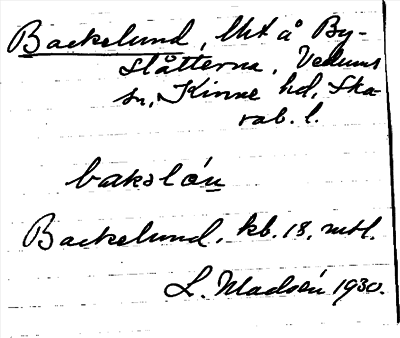 Backelund, Uht å By-
slåtterna, Vedums
sn, Kinne hd, Ska-
rab. l.
bakslo'n
Backelund, kb. 18. mtl.
L. Madsén 1930.